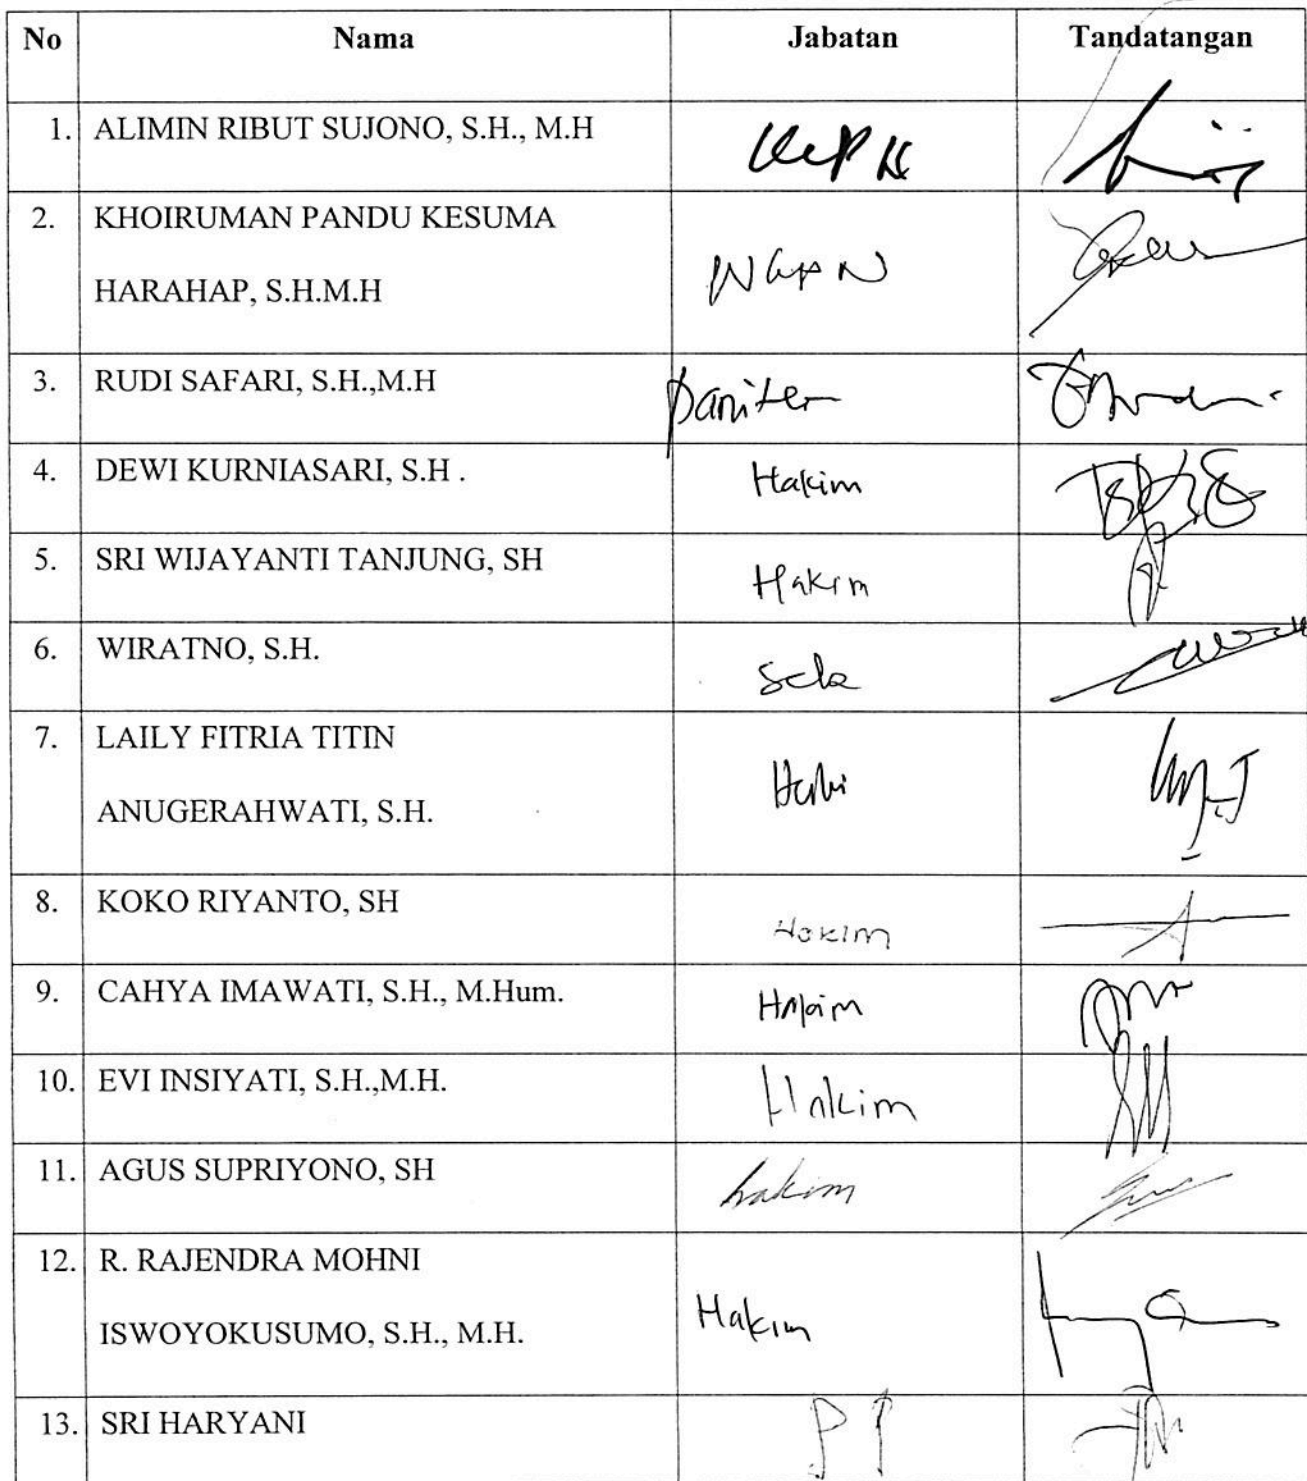 No Nama Jabatan Tandatangan
1. ALIMIN RIBUT SUJONO, S.H., M.H
2. KHOIRUMAN PANDU KESUMA
HARAHAP, S.H.M.H
3. RUDI SAFARI, S.H.,M.H Paniter
4. DEWI KURNIASARI, S.H . Hakim
5. SRI WIJAYANTI TANJUNG, SH Hakim
6. WIRATNO, S.H.
7. LAILY FITRIA TITIN
ANUGERAHWATI, S.H.
8. KOKO RIYANTO, SH Hakim
9. CAHYA IMAWATI, S.H., M.Hum. Hakim
10. EVI INSIYATI, S.H.,M.H. Hakim
11. AGUS SUPRIYONO, SH hakim
12. R. RAJENDRA MOHNI
ISWOYOKUSUMO, S.H., M.H. Hakim
13. SRI HARYANI